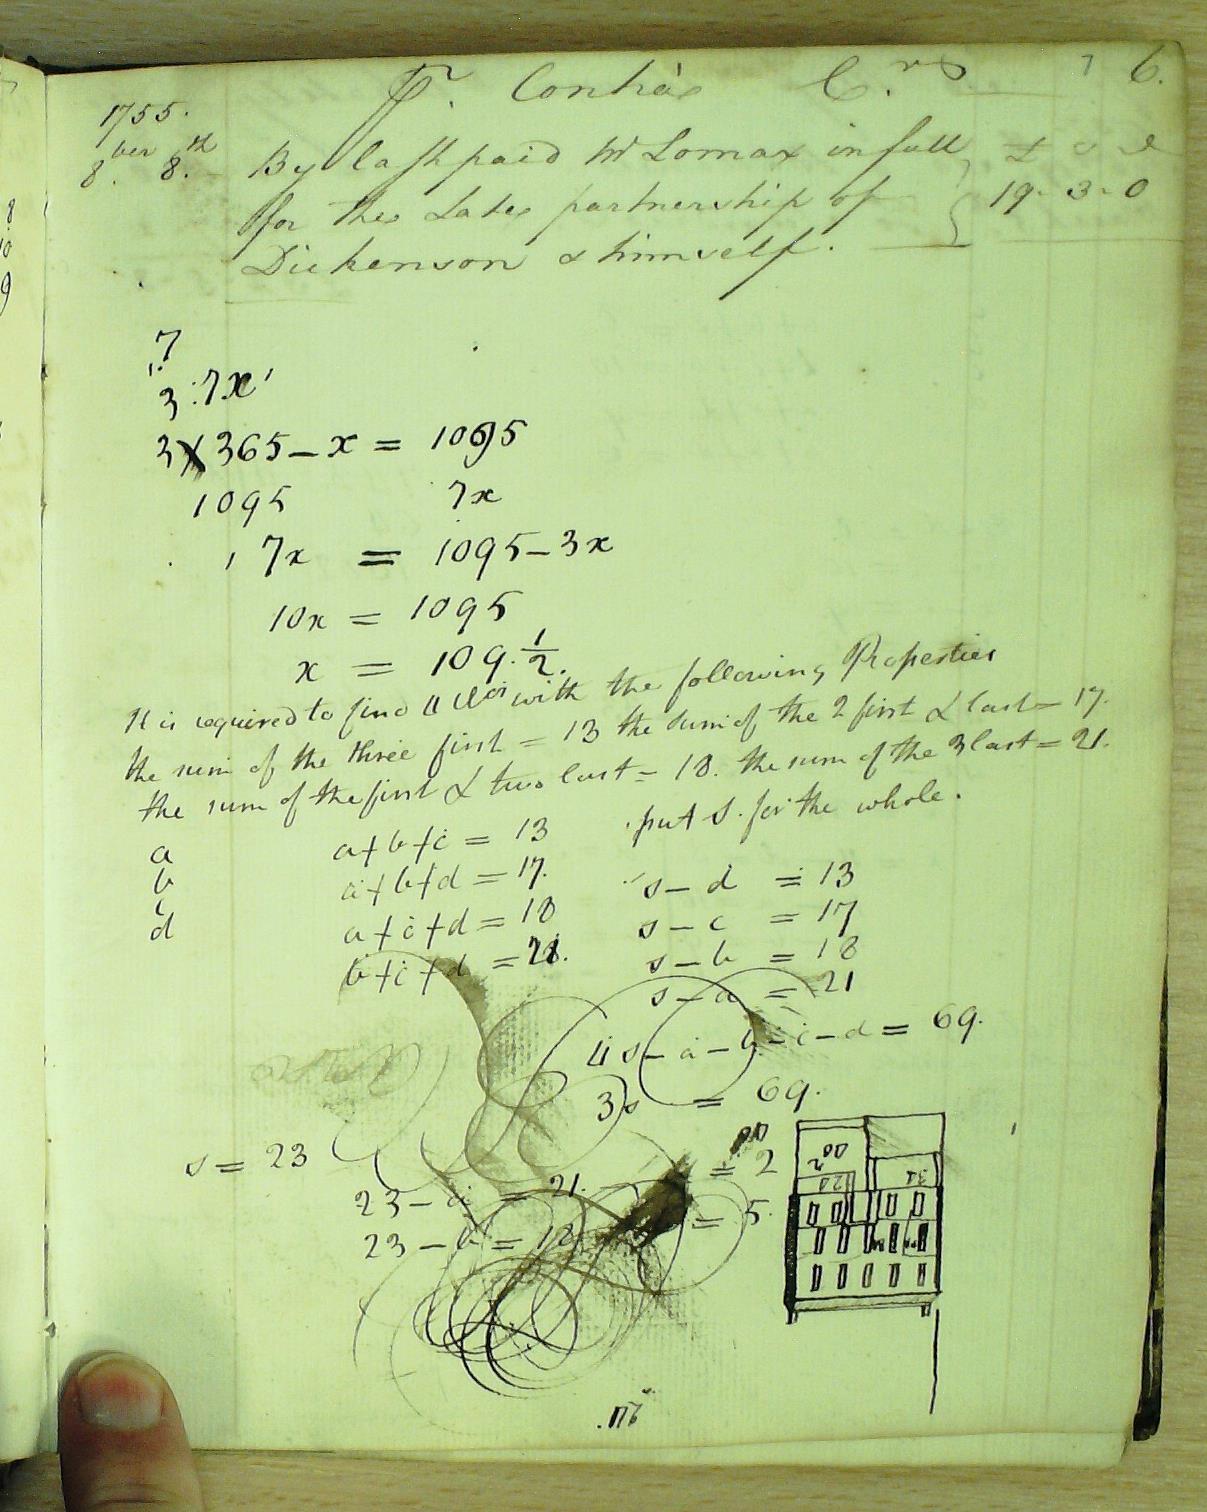 Pr. Contra Crs 7 6.
1755.
8ber 8.th By Cash paid Mr Lomax in full £ s d
for the Late partnership of 19-3-0
Dickenson & himself.
7
3:7x
3X365-x = 1095
1095 7x
7x = 1095-3x
10x = 1095
x = 109.1/2.
It is required to find 4 Nos with the following Properties
the sum of the three first = 13 the sum of the 2 first & last = 17.
the sum of the first & two last = 18. the sum of the 3 last = 21.
put s. for the whole.
a a+b+c = 13
b a+b+d = 17. s-d = 13
c a+c+d = 18 s-c = 17
d b+c+d = 21. s-b = 18
s-a = 21
4s-a-b-c-d = 69.
3s = 69.
s = 23
23-a = 21. = 2
23-b = 18 = 5.